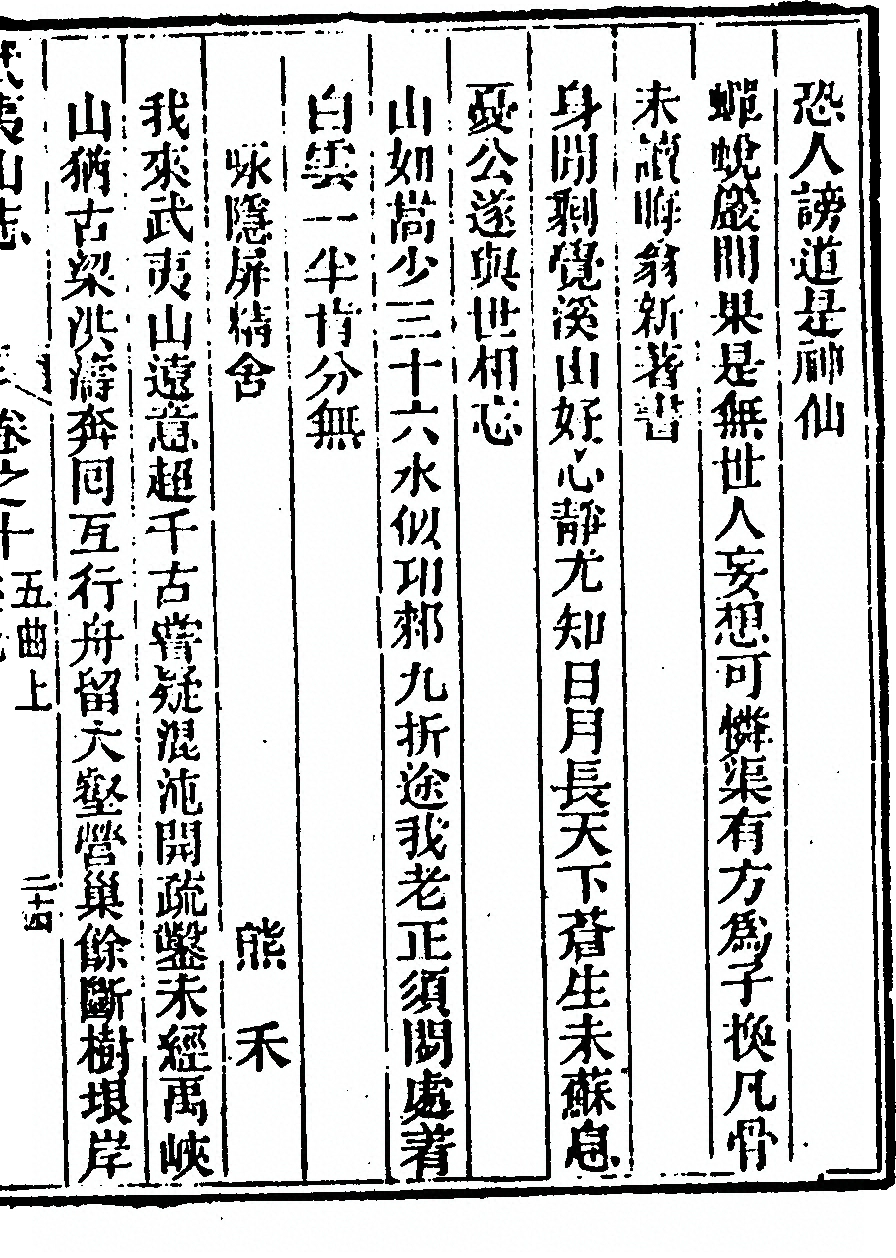 恐人謗道是神仙
蟬蛻巖間果是無世人妄想可憐渠有方爲子換凡骨
未讀晦翁新著書
身閒剩覺溪山好心靜尤知日月長天下蒼生未蘇息
憂公遂與世相忘
山如嵩少三十六水似邛郲九折途我老正須閒處著
白雲一半肯分無
咏隱屏精舍
熊禾
我來武夷山遠意超千古嘗疑混沌開疏鑿未經禹峽
山猶古梁洪濤奔回互行舟留大壑營巢餘斷樹垠岸
武夷山志
卷之十
五曲上
二十四